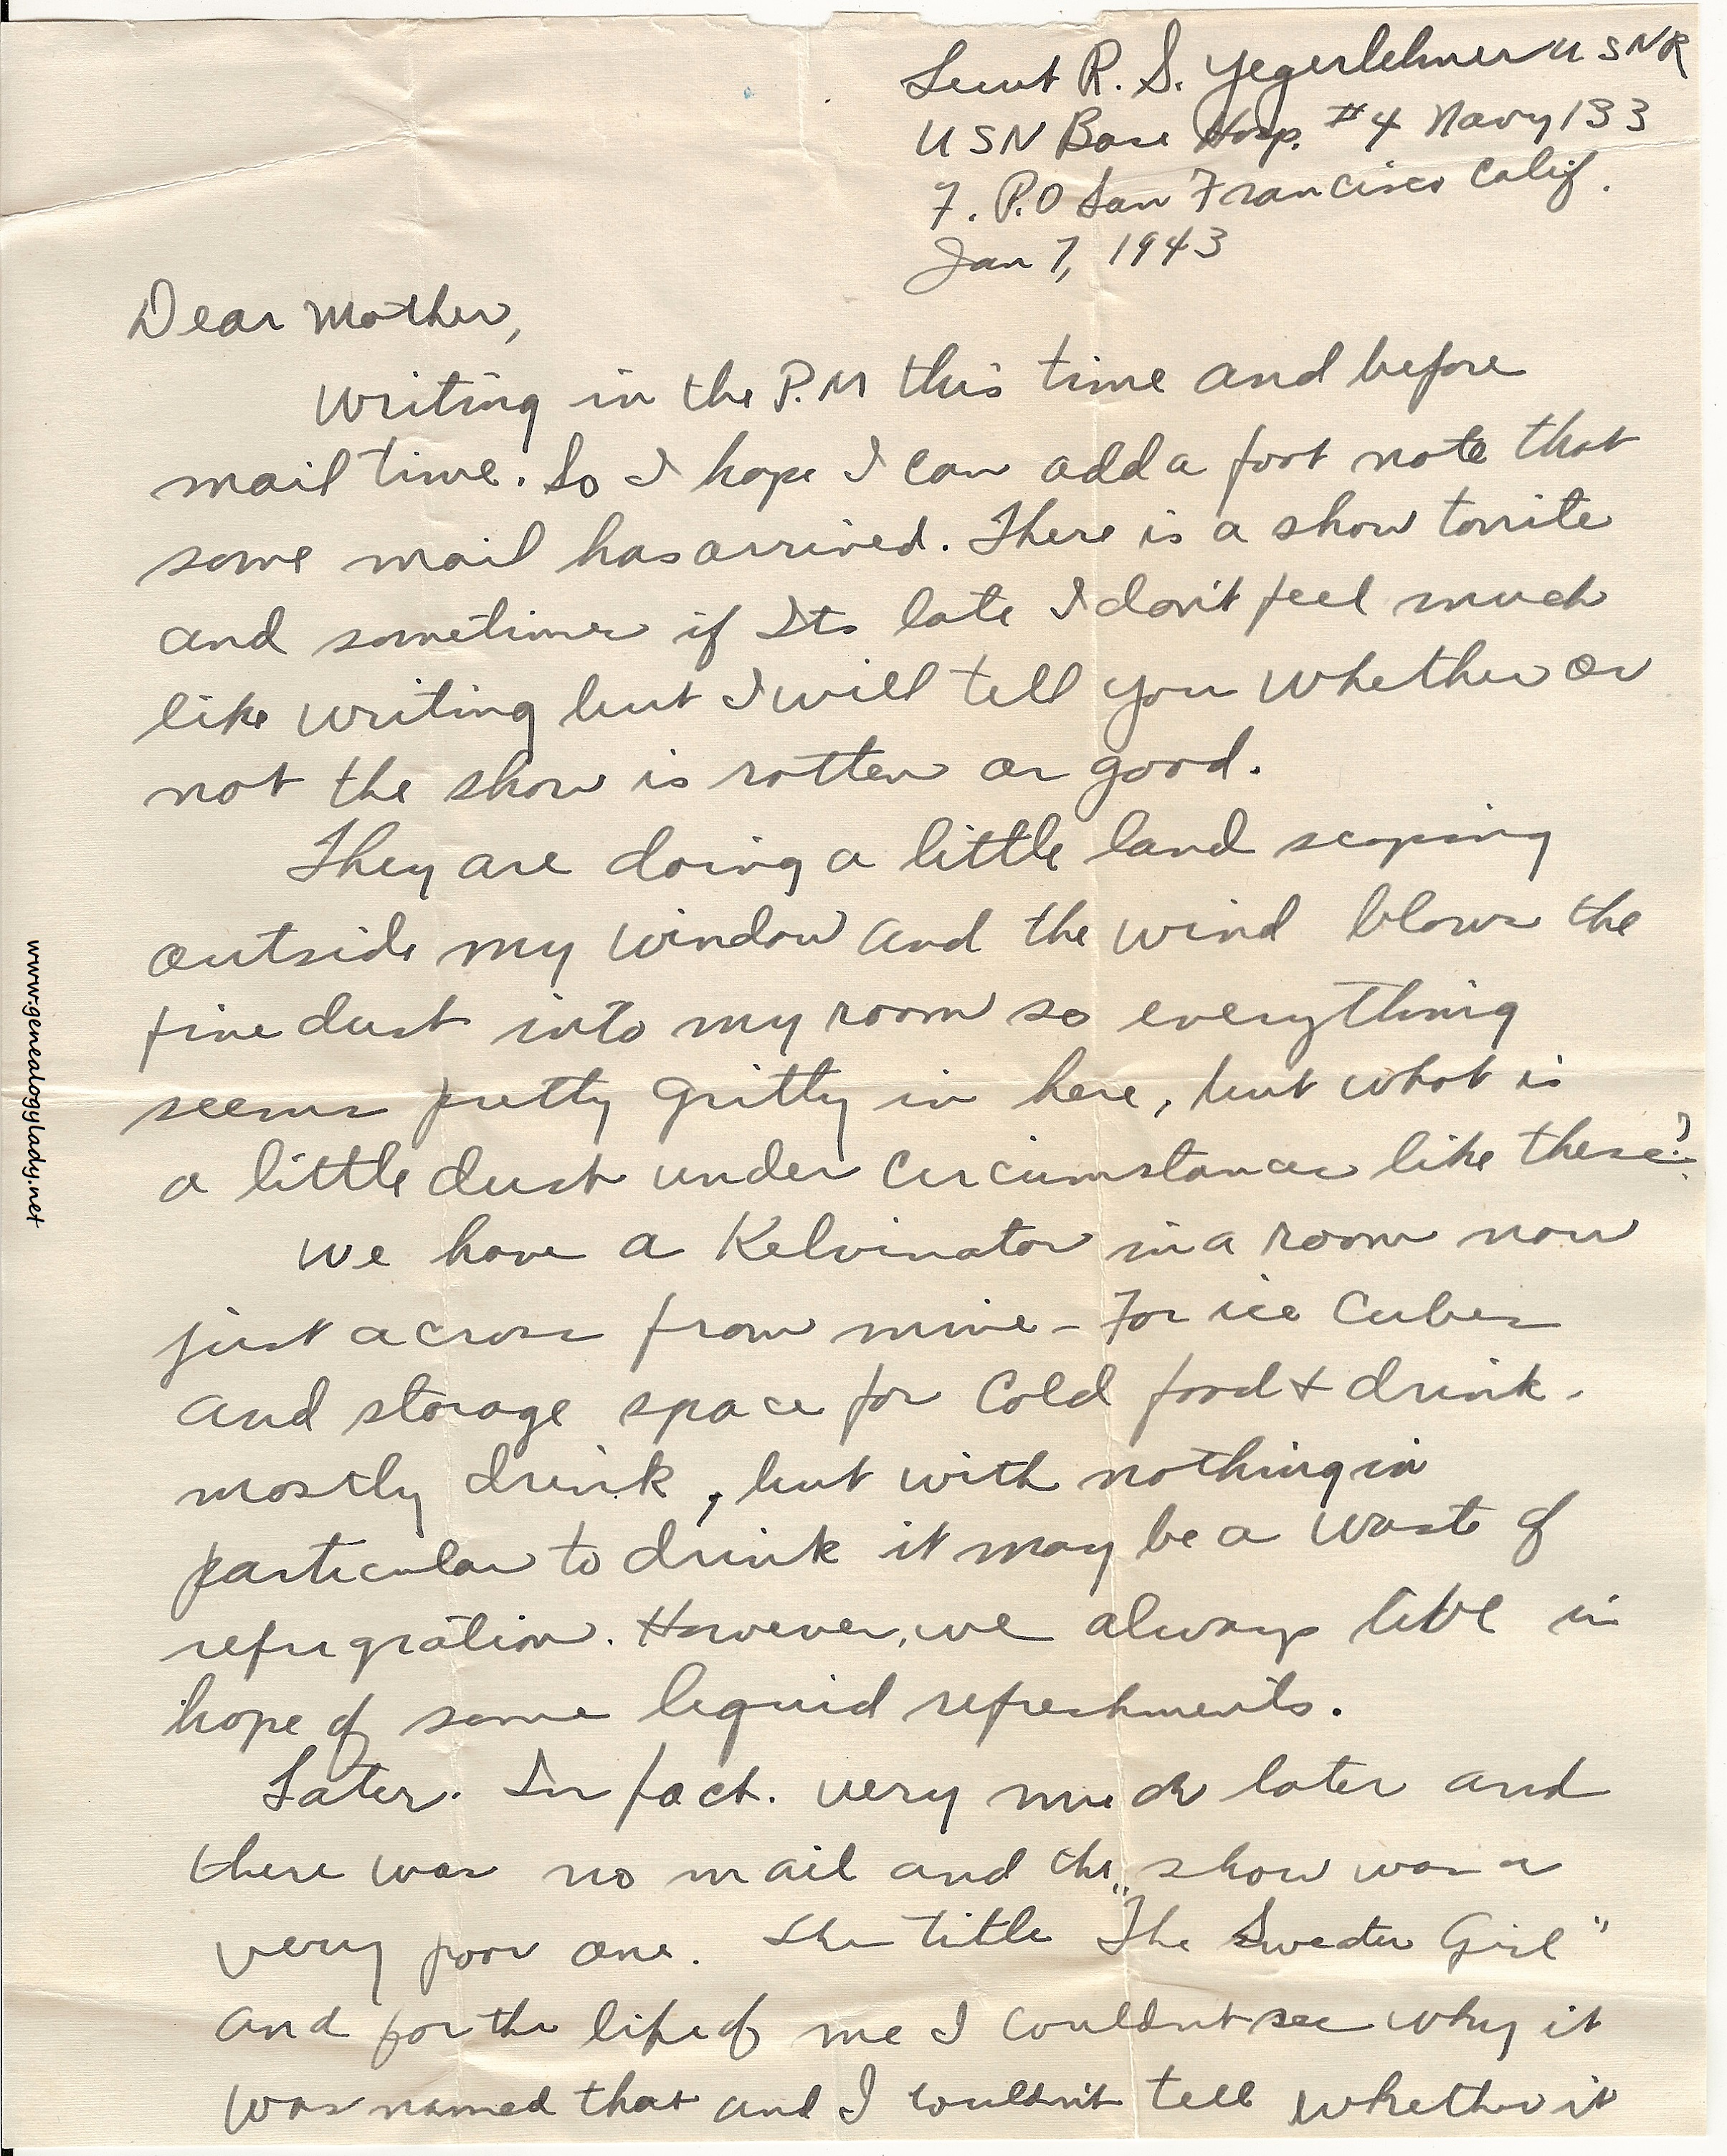 Lieut R. S. Yegerlehner USNR
USN Base Hosp. #4 Navy 133
F. P.O San Francisco Calif.
Jan 7, 1943
Dear Mother,
Writing in the P.M this time and before
mail time. So I hope I can add a foot note that
some mail has arrived. There is a show tonite
and sometimes if Its late I don't feel much
like writing but I will tell you whether or
not the show is rotten or good.
They are doing a little land scaping
outside my window and the wind blows the
fine dust into my room so everything
seems pretty gritty in here, but what is
a little dust under circumstances like these?
We have a Kelvinator in a room now
just across from mine - For ice cubes
and storage space for cold food + drink -
mostly drink, but with nothing in
particular to drink it may be a waste of
refrigration. However, we always live in
hope of some liquid refreshments.
Later. In fact. very much later and
there was no mail and the show was a
very poor one. The title "The Sweater Girl"
and for the life of me I couldn't see why it
was named that and I couldn't tell whether it
www.genealogylady.net